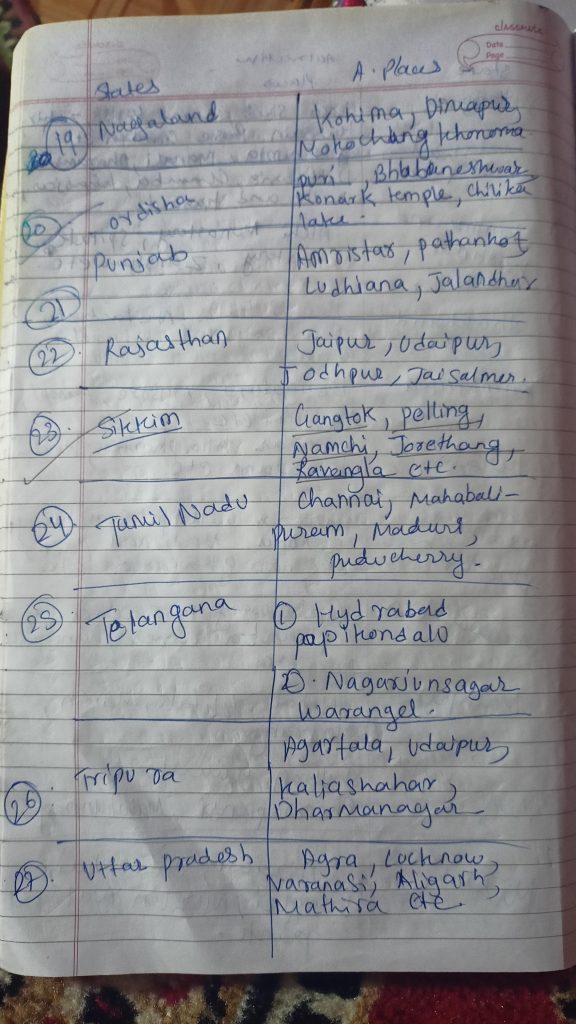 classmate
Date
Page
States A. Places
19 Nagaland Kohima, Dimapur,
Mokochang Khonoma
20 ordisha puri, Bhabaneshwar
Konark temple, Chilika
lake.
21 Punjab Amristar, pathankot
Ludhiana, Jalandhar
22 Rajasthan Jaipur, Udaipur,
Jodhpur, Jaisalmer.
23 Sikkim Gangtok, pelling,
Namchi, Jorethang,
Ravangla etc.
24 Tamil Nadu Channai, Mahabali-
puram, Maduri,
puducherry.
25 Telangana ① Hydrabad
papikondalu
②. Nagarjunsagar
Warangel.
26 Tripura Agartala, Udaipur,
Kaliashahar,
Dharmanagar
27 Uttar pradesh Agra, Locknow,
Varanasi, Aligarh,
Mathira etc.